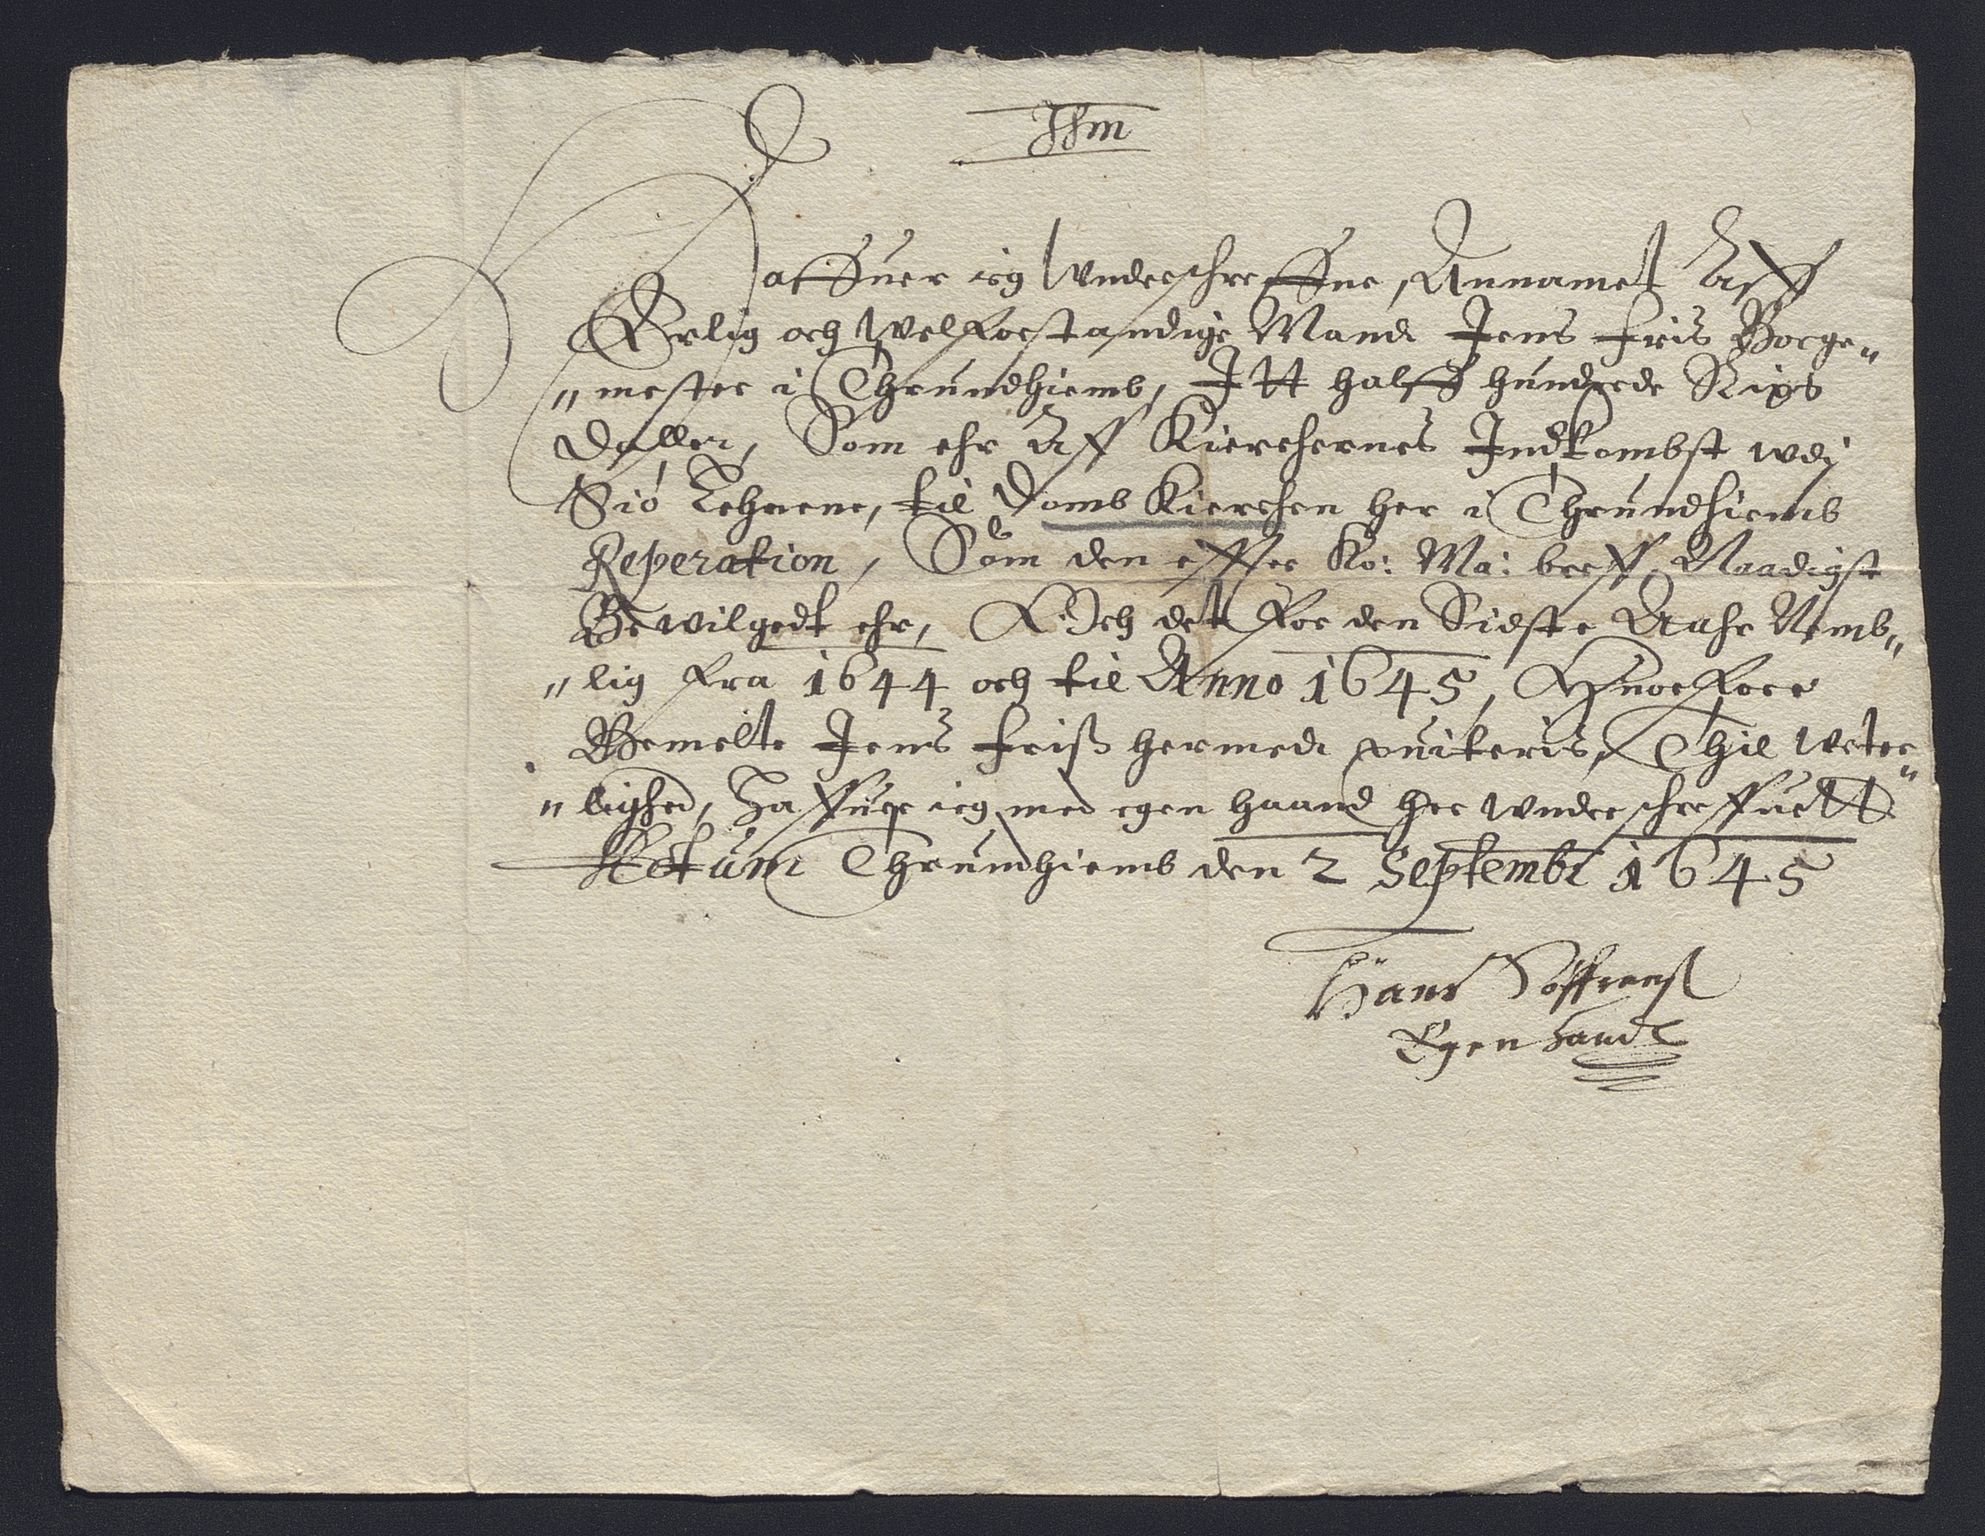 Jhm
Haffuer ieg Wnderschreffne, Annamet Aff
Erlig och Welforstandige Mand Jens Fris Borge„
„mester i Thrundhiemb, Itt halff hundrede Rixs
Daller, Som ehr Aff Kierchernes Indkombst wdj
Siö Lehnene, til Domb Kierchen her i Thrundhiemb
Reperation, Som den effter Ko: Ma: breff, Naadigst
Bewilgedt ehr, Och det for den Sidste Aahr Nemb„
„lig fra 1644 och til Anno 1645, Huorfore
Bemelte Jens Friß hermed quiteris, Thil Witter„
„lighed, Haffuer ieg med egen haand her wnderschreffuett
Actum Thrumhiemb den 2 Septembr 1645
Hans Söffrenß
Egen Handt